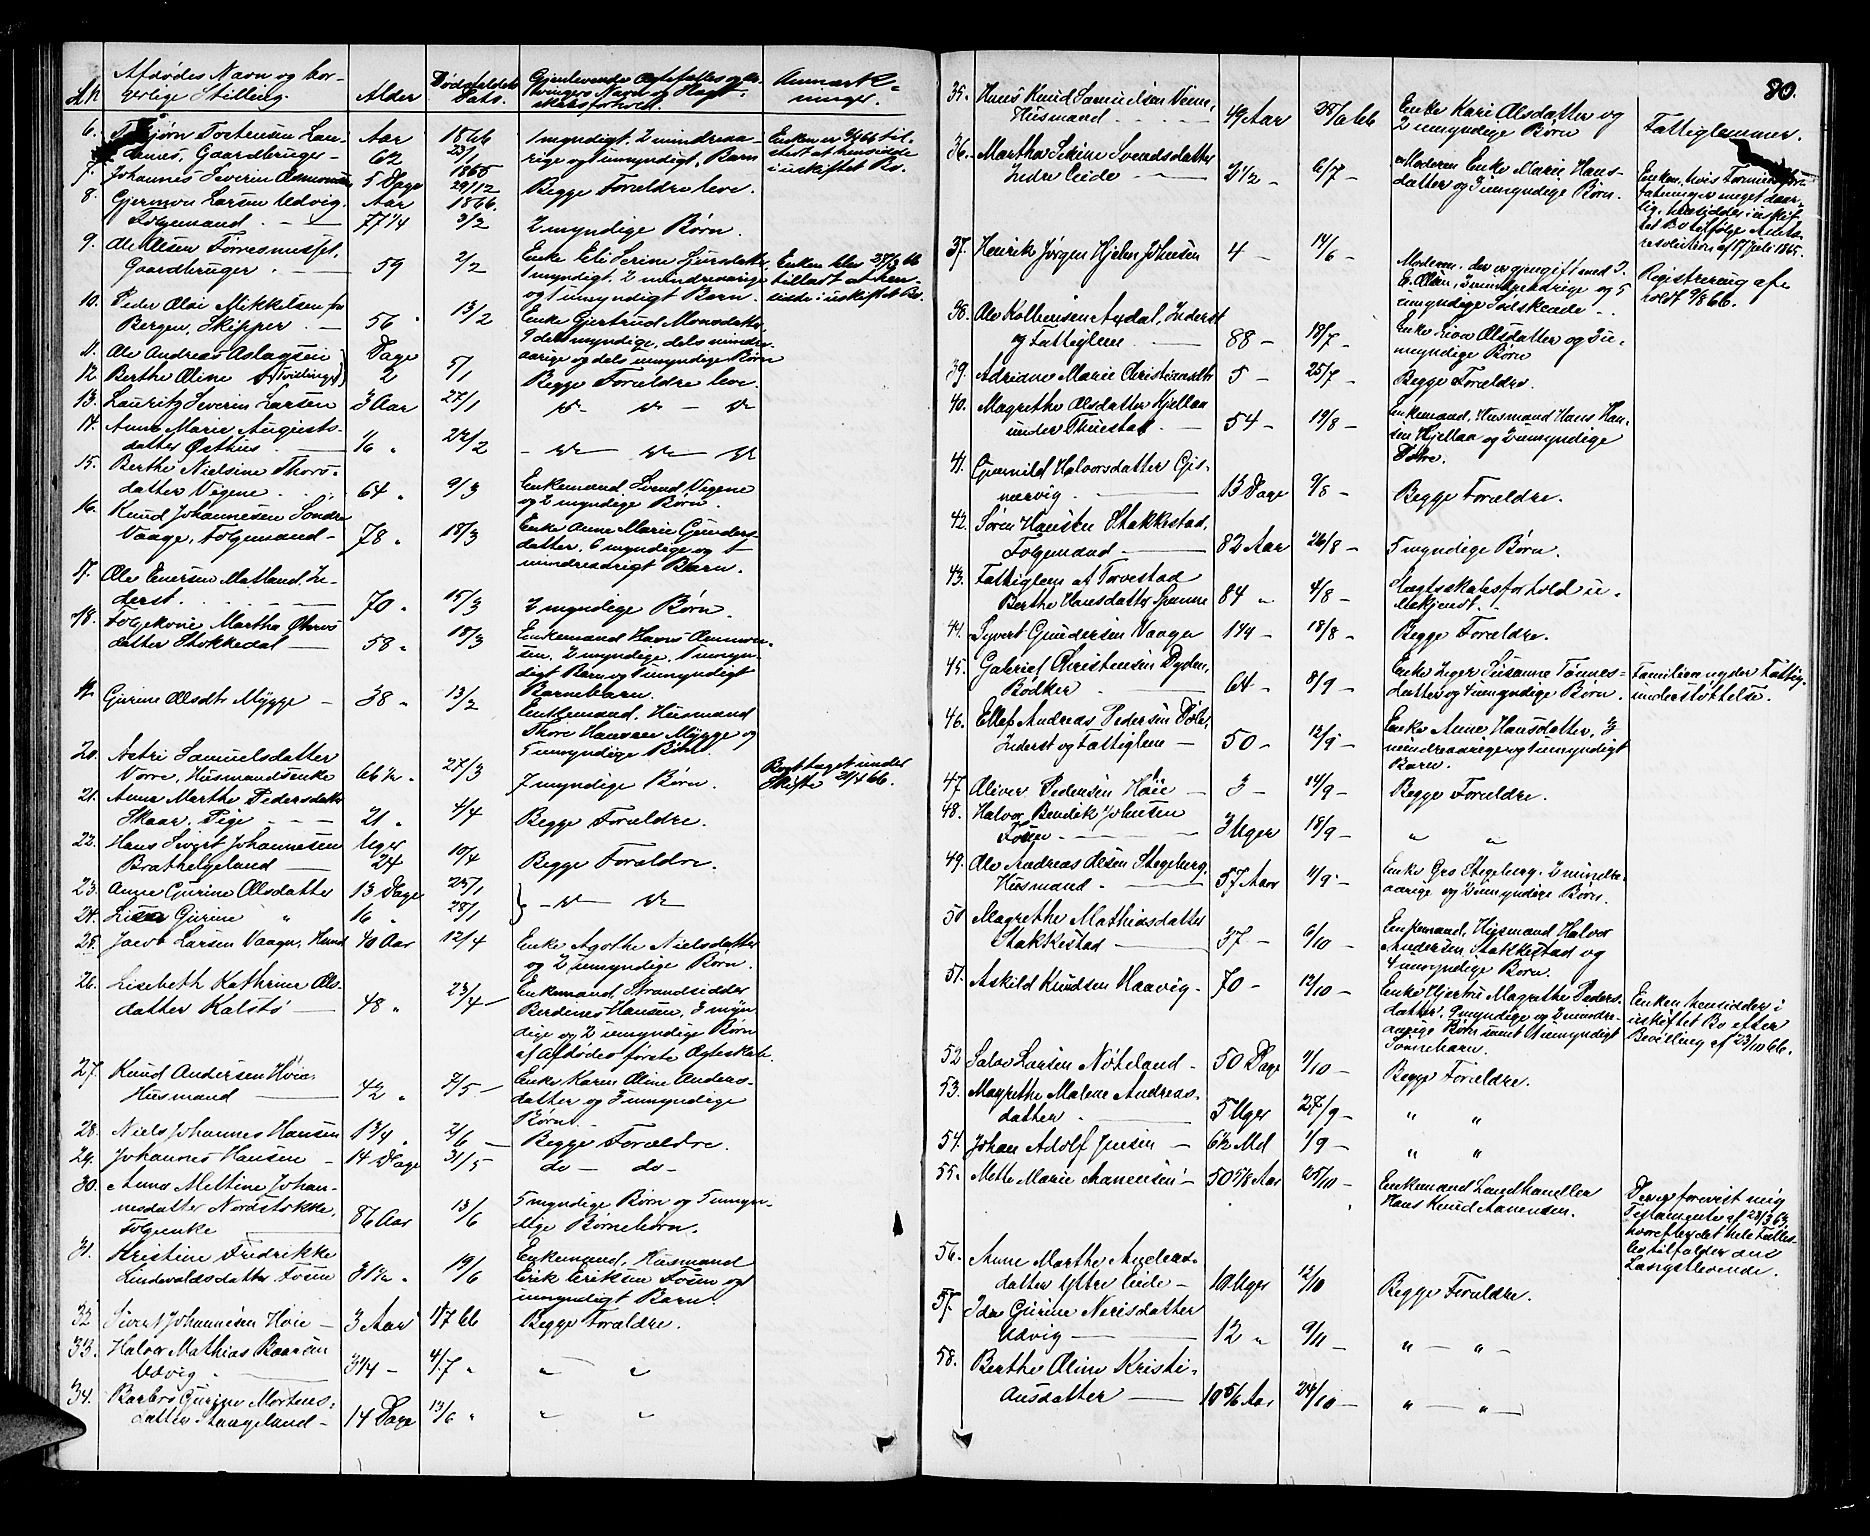 Afdødes Navn og bor-
gerlige Stilling.
Alder
Dødsfaldets
Dato.
Gjenlevende Ægtefælles og Ar-
vingers Navn og Slægt-
skabsforhold.
Anmærk-
ninger.
6. Tostensen
Gaardbruger -
Aar
62
1866
23/1
1 myndigt, 2 mindreaa-
rige og 1 umyndigt, Barn
Enken er til-
i uskiftet Bo.
7. Johannes Severin Asmunds
5 Dage
1865
29/12
Begge Forældre leve.
8. Gjermon Larsen Udvig,
Folgemand. —
Aar
77 1/4
1866.
3/2
2 myndige Børn.
9. Ole Olsen Førresmusset,
Gaardbruger. —
59
2/2
Enke Eli Serine
1 myndigt, 2 mindreaarige
og 1 umyndigt Barn.
Enken blev
tilladt at hen-
sidde i uskiftet Bo.
10. Peder Olai Mikkelsen fra
Bergen, Skipper. —
56
13/2
Enke Gjertrud Monsdatter,
9 dels myndige, dels mindre-
aarige og dels umyndige Børn
11. Ole Andreas Aslagsen
12. Berthe Oline (Tvillinger)
Dage
2
5/1
Begge Forældre leve.
13. Lauritz Severin Larsen
3 Aar
27/1
do — do — do
14. Anne Marie Augusts-
datter Østhus. —
1/6 "
22/2
- do — do — do
15. Berthe Nielsine Thors-
datter Vigene. . .
64 "
9/3
Enkemand, Svend Vigene
og 2 myndige Børn.
16. Knud Johannesen Søndre
Vaage, Folgemand -
78 "
18/3
Enke Anne Marie Gunders-
datter, 6 myndige og 1
mindreaarigt Barn.
17. Ole Enersen Matland, In-
derst. . . —
70 "
15/3
2 myndige Børn.
18. Folgekone Martha
datter Stokkedal —
58 "
18/3
Enkemand Hans
sen, 2 myndige, 1 umyn-
digt Barn og 1 umyndigt
Barnebarn.
19. Gurine Olsdtr Mygge -
38 "
13/2
Enkemand, Husmand
Thore Hansen Mygge og
5 umyndige Børn.
20. Samuelsdatter
Vorre, Husmandsenke
66 1/2 "
27/3
7 myndige Børn.
taget under
Skifte 21/4 66.
21. Anna Marthe Pedersdatter
Skaar, Pige - - -
21 "
4/4
Begge Forældre.
22. Hans Sivert Johannesen
Brathelgeland —
Uger
24
10/4
Begge Forældre.
23. Anne Gurine Olsdatter
13 Dage
25/1
24. Gurine "
16 "
28/1
} - do do —
25. Jacob Larsen Vaage, Hmd
40 Aar
12/4
Enke Agathe Nielsdatter
og 2 umyndige Børn.
26. Lisebeth Kathrine Ols-
datter Kalstø —
48 "
23/4 —
Enkemand, Strandsidder
Berdines Hansen, 3 myn-
dige og 2 umyndige Børn
af Afdødes første Ægteskab.
27. Knud Andersen Høie,
Husmand —
42 "
7/5 —
Enke Karen Oline Anders-
datter og 3 umyndige
Børn. —
28. Niels Johannes Hansen
1 3/4 "
2/6 —
Begge Forældre.
29. Johannes Hansen -
14 Dage
31/5
do — do -
30. Anna Meltine Johan-
nesdatter Nordstokke,
Folgeenke —
86 Aar
13/6
5 myndige Børn og 5 umyn-
dige Børnebørn.
31. Kristine Fredrikke
datter Fosen
31 1/2 "
19/6
Enkemand, Husmand
Erik Eriksen Fosen og 1
umyndigt Barn.
32. Sivert Johannesen Høie -
3 Aar
1/7 66
Begge Forældre.
33. Halvor Mathias Baarsen
Udvig. —
3 1/4 —
4/7 "
" "
34. Barbro Gurine Mortens-
datter Haugeland -
14 Dage
13/6 "
" "
80.
35. Hans Knud Samuelsen
Husmand - - - -
49 Aar
25/6 66
Enke Kari Olsdatter og
2 umyndige Børn
Fattiglemmer.
36. Martha Sekine Svendsdatter
Indre Eide — —
2 1/2 -
6/7 —
Moderen, Enke Marie Hans-
datter og 3 umyndige Børn.
Enken, hvis Formuesfor-
fatning er meget daar-
lig, hensidder i uskif-
tet Bo tilfølge Amts-
resolution af 17 Juli 1865.
37. Henrik Jørgen Hjelm Johnsen
4 —
14/6 —
Moderen, der er gjengift med
E. Olsen, 3 mindreaarige og 5
umyndige Sødskende . .
Registrering af-
holdt 9/8 66.
38. Ole Kolbeinsen Aydal, Inderst
og Fattiglem. —
88 —
18/7 —
Enke Olsdatter og 3 u-
myndige Børn
39. Adriane Marie Christiansdtr
5 -
25/7 —
Begge Forældre.
40. Magrethe Olsdatter Hjellaa
under Thuestad —
54 —
19/8 —
Enkemand, Husmand Hans Han-
sen Hjellaa og 2 umyndige
Døtre.
41. Gunnild Halvorsdatter Gis-
nærvig. —
13 Dage
9/8 —
Begge Forældre.
42. Søren Hansen Stakkestad,
Folgemand —
82 Aar
26/8 -
5 myndige Børn.
43. Fattiglem af Torvestad
Berthe Hansdatter Spanne
84 "
4/8 —
Slægtskabsforhold u-
bekjendt. .
44. Syvert Gundersen Vaage
1 1/4 -
18/8 —
Begge Forældre.
45. Gabriel Christensen Dyden,
Bødker —
64 —
8/9 —
Enke Inger Susanne Tønnes-
datter og 5 umyndige Børn.
Familien nyder Fattig-
understøttelse.
46. Ellef Andreas Pedersen Døle,
Inderst og Fattiglem —
50 -
12/9 -
Enke Anne Hansdatter, 3
mindreaarige og 1 umyndigt
Barn.
47. Oliver Pedersen Høie —
3 —
14/9 —
Begge Forældre.
48. Halvor Bendik Johnsen
Fosen — —
3 Uger
18/9 —
" "
49. Ole Andreas Olsen Stegeberg,
Husmand. —
57 Aar
11/9 -
Enke Gro Stegeberg, 2 mindre-
aarige og 2 umyndige Børn.
50. Magrethe Mathiasdatter
Stakkestad —
37 —
6/10 —
Enkemand, Husmand Halvor
Andersen Stakkestad og
4 umyndige Børn.
51. Askild Knudsen Haavig -
70 —
12/10 —
Enke Magrethe Peders-
datter, 9 myndige og 2 mindre-
aarige Børn samt 1 umyndigt
Sønnebarn.
Enken hensidder i
uskiftet Bo efter
Bevilling af 23/10 66.
52. Salve Larsen Nøteland —
50 Dage
1/10 —
Begge Forældre.
53. Magrethe Malene Andreas-
datter —
5 Uger
27/9 —
" "
54. Johan Adolf Jensen —
6 1/2 Md
1/9 —
" "
55. Mette Marie Aanensen -
50 5/8 Aar
25/10 —
Enkemand Landhandler
Hans Knud Aanensen.
Der er forevist mig
Testamente af 23/3 63,
hvorefter det hele Fælles-
bo tilfalder den
Længstlevende.
56. Anne Marthe Andreas-
datter Ytre Eide -
10 Uger
12/10
Begge Forældre.
57. Ida Gurine Nerisdatter
Udvig —
12 "
9/11
" — " —
58. Berthe Oline Kristi-
ansdatter —
10 5/6 Aar
24/10 —
" — " —